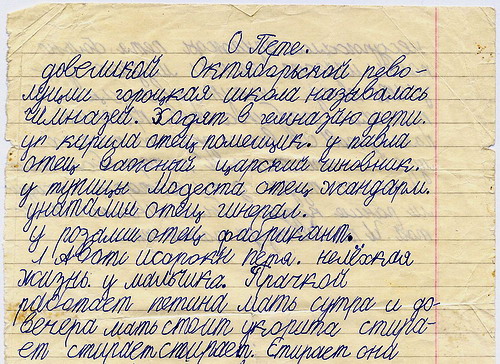 О Пете.
довеликой Октябрьской рево-
люции гороцкая школа называлась
гимназей. Ходят в гемназию дети.
ук кирила отец помещик. у павла
отец важний царский чиновник.
у тупицы модеста отец жандарм.
унаталии отец гинерал.
у розалии отец фабрикант.
А вот исороки петя. нелёхкая
жизнь. у мальчика. Прачкой
работает петина мать сутра и до-
вечера мать стоит укорита стира-
ет стирает стирает. Стирает они